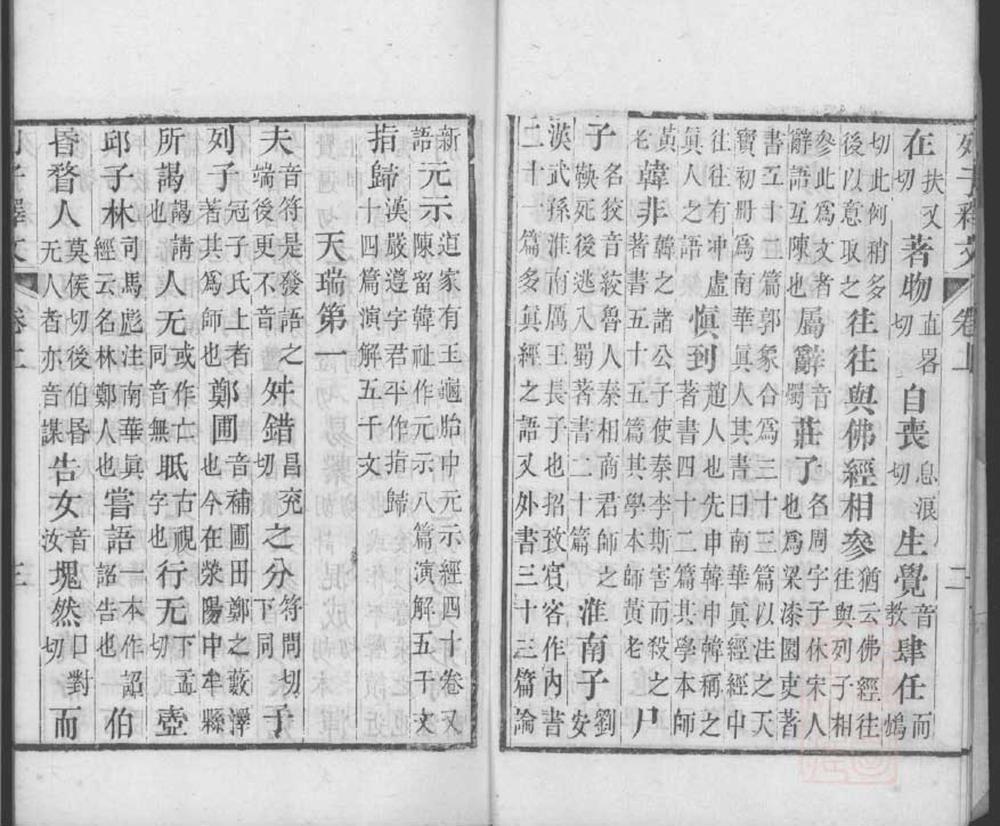 列子釋文 卷上 二
在扶又切著物直畧切自喪息浪切生覺音教肆任而鴆
切此例稍多後以意取之往往與佛經相參猶云佛經往往與列子相
參此爲文者辭語互陳也屬辭音蜀莊子名周字子休宋人也爲梁漆園吏著
書五十二篇郭象合爲三十三篇以注之天寶初冊爲南華眞人其書曰南華眞經經中
往往有冲虛眞人之語愼到趙人也先申韓申韓稱之著書四十二篇其學本師
黃老韓非韓之諸公子使秦李斯害而殺之著書五十五篇其學本師黃老尸
子名佼音絞魯人秦相商君師之鞅死後逃入蜀著書二十篇淮南子劉安
漢武孫淮南厲王長子也招致賓客作內書二十一篇多眞經之語又外書三十三篇論
新語元示道家有玉龜胎中元示經四十卷又陳留韓祉作元示八篇演解五千文
指歸漢嚴遵字君平作指歸十四篇演解五千文
天瑞第一
夫音符是發語之端後更不音舛錯昌兗切之分符問切下同子
列子冠子氏上者著其爲師也鄭圃音補圃田鄭之藪澤也今在滎陽中牟縣
所謁謁請也人无或作亡同音無眂古視字也行无下孟切壺
邱子林司馬彪注南華眞經云名林鄭人也嘗語一本作詔詔告也伯
昏瞀人莫侯切後伯昏无人者亦音謀告女音汝塊然口對切而
列子釋文 卷上 三